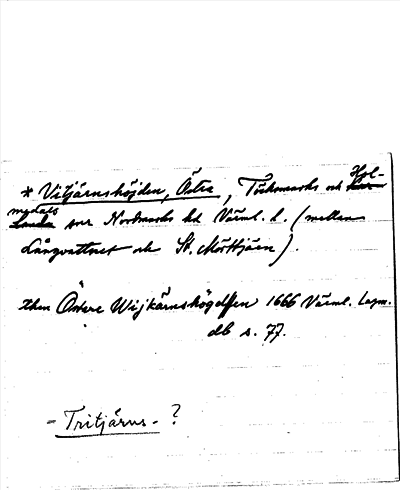 * Vitjärnshöjden, Östra, Töcksmarks och Hol-
medals snr Nordmarks hd Värml. l. (mellan
Långvattnet och St. Mörttjärn).
then Östere Wijkärnshögdhen 1666 Värml. Lagm.
db s. 77.
- Tritjärns - ?